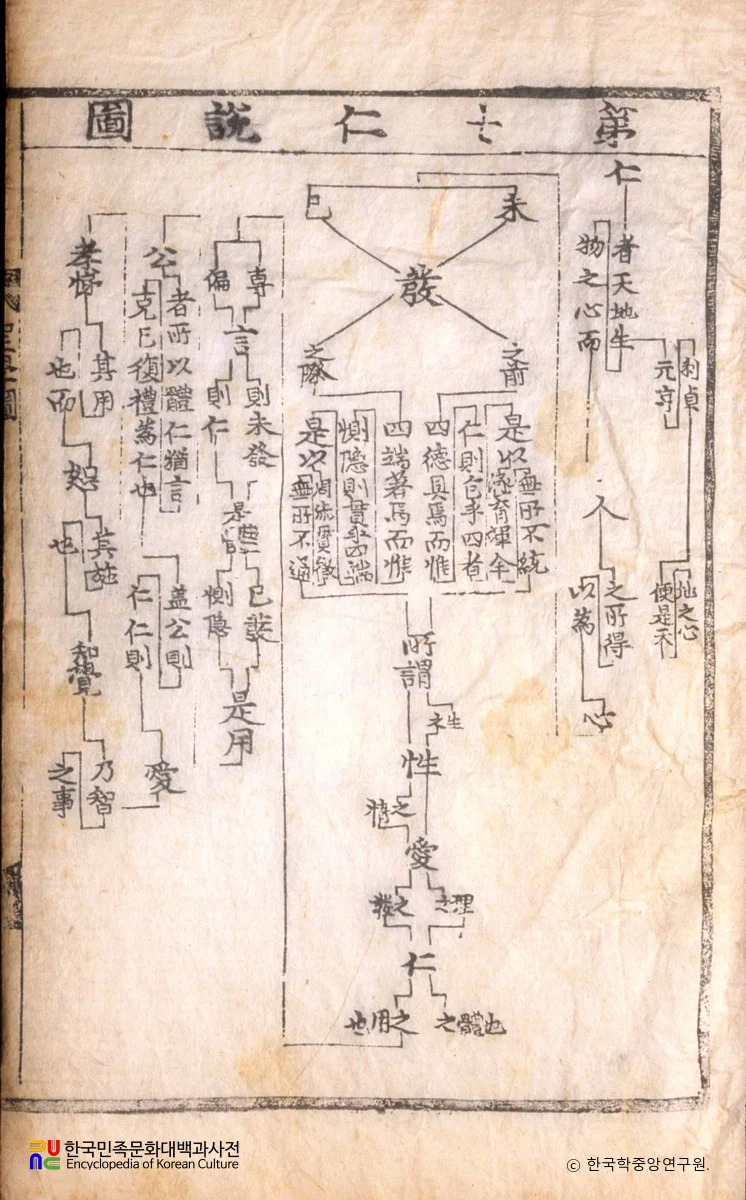 第七仁說圖
仁
者天地生
物之心而
利貞
元亨
地之心
便是天
人
之所得
以為
心
未
已
發
之前
之際
四德具焉而惟
仁則包乎四者
是以涵育渾全
無所不統
四端著焉而惟
惻隱則貫乎四端
是以周流貫徹
無所不通
所謂
生
之
性
之情
愛
之理
之發
仁
之體也
之用也
專
偏
言
則未發
則仁
是體
已發
惻隱
是用
公
者所以體仁猶言
克己復禮為仁也
盖公則
仁仁則
愛
孝悌
其用
也而
恕
其施
也
知覺
乃智
之事
한국민족문화대백과사전
Encyclopedia of Korean Culture
© 한국학중앙연구원.